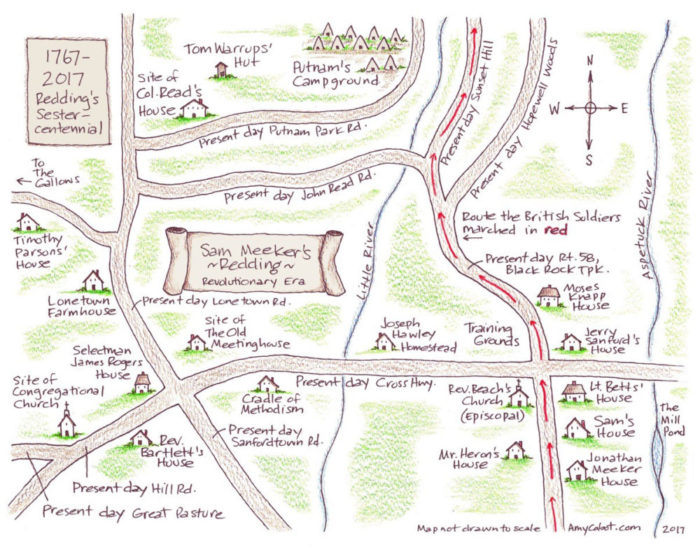 1767-
2017
Redding's
Sester-
centennial
Tom Warrups'
Hut
Putnam's
Campground
Site of
Col. Read's
House
Present day Putnam Park Rd.
Present day Sunset Hill
Present day Hopewell Woods
N
W
E
S
To
The
Gallows
Present day John Read Rd.
Timothy
Parsons'
House
Sam Meeker's
~Redding~
Revolutionary Era
Little River
Route the British Soldiers
marched in red
Aspetuck River
Present day Rt. 58,
Black Rock Tpk.
Lonetown
Farmhouse
Present day Lonetown Rd.
Moses
Knapp
House
Site of
The Old
Meetinghouse
Joseph
Hawley
Homestead
Training
Grounds
Jerry
Sanford's
House
Selectman
James Rogers
House
Present day Cross Hwy.
Site of
Congregational
Church
Cradle of
Methodism
Rev. Beach's
Church
(Episcopal)
Lt. Betts'
House
Sam's
House
The
Mill
Pond
Rev.
Bartlett's
House
Present day
Sanfordtown Rd.
Mr. Heron's
House
Jonathan
Meeker
House
Present day Hill Rd.
Present day Great Pasture
Map not drawn to scale
AmyColast.com
2017